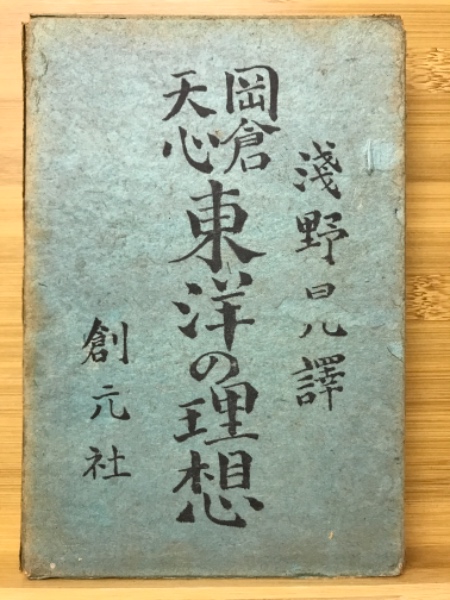 淺野晃譯
岡倉
天心
東洋の理想
創元社